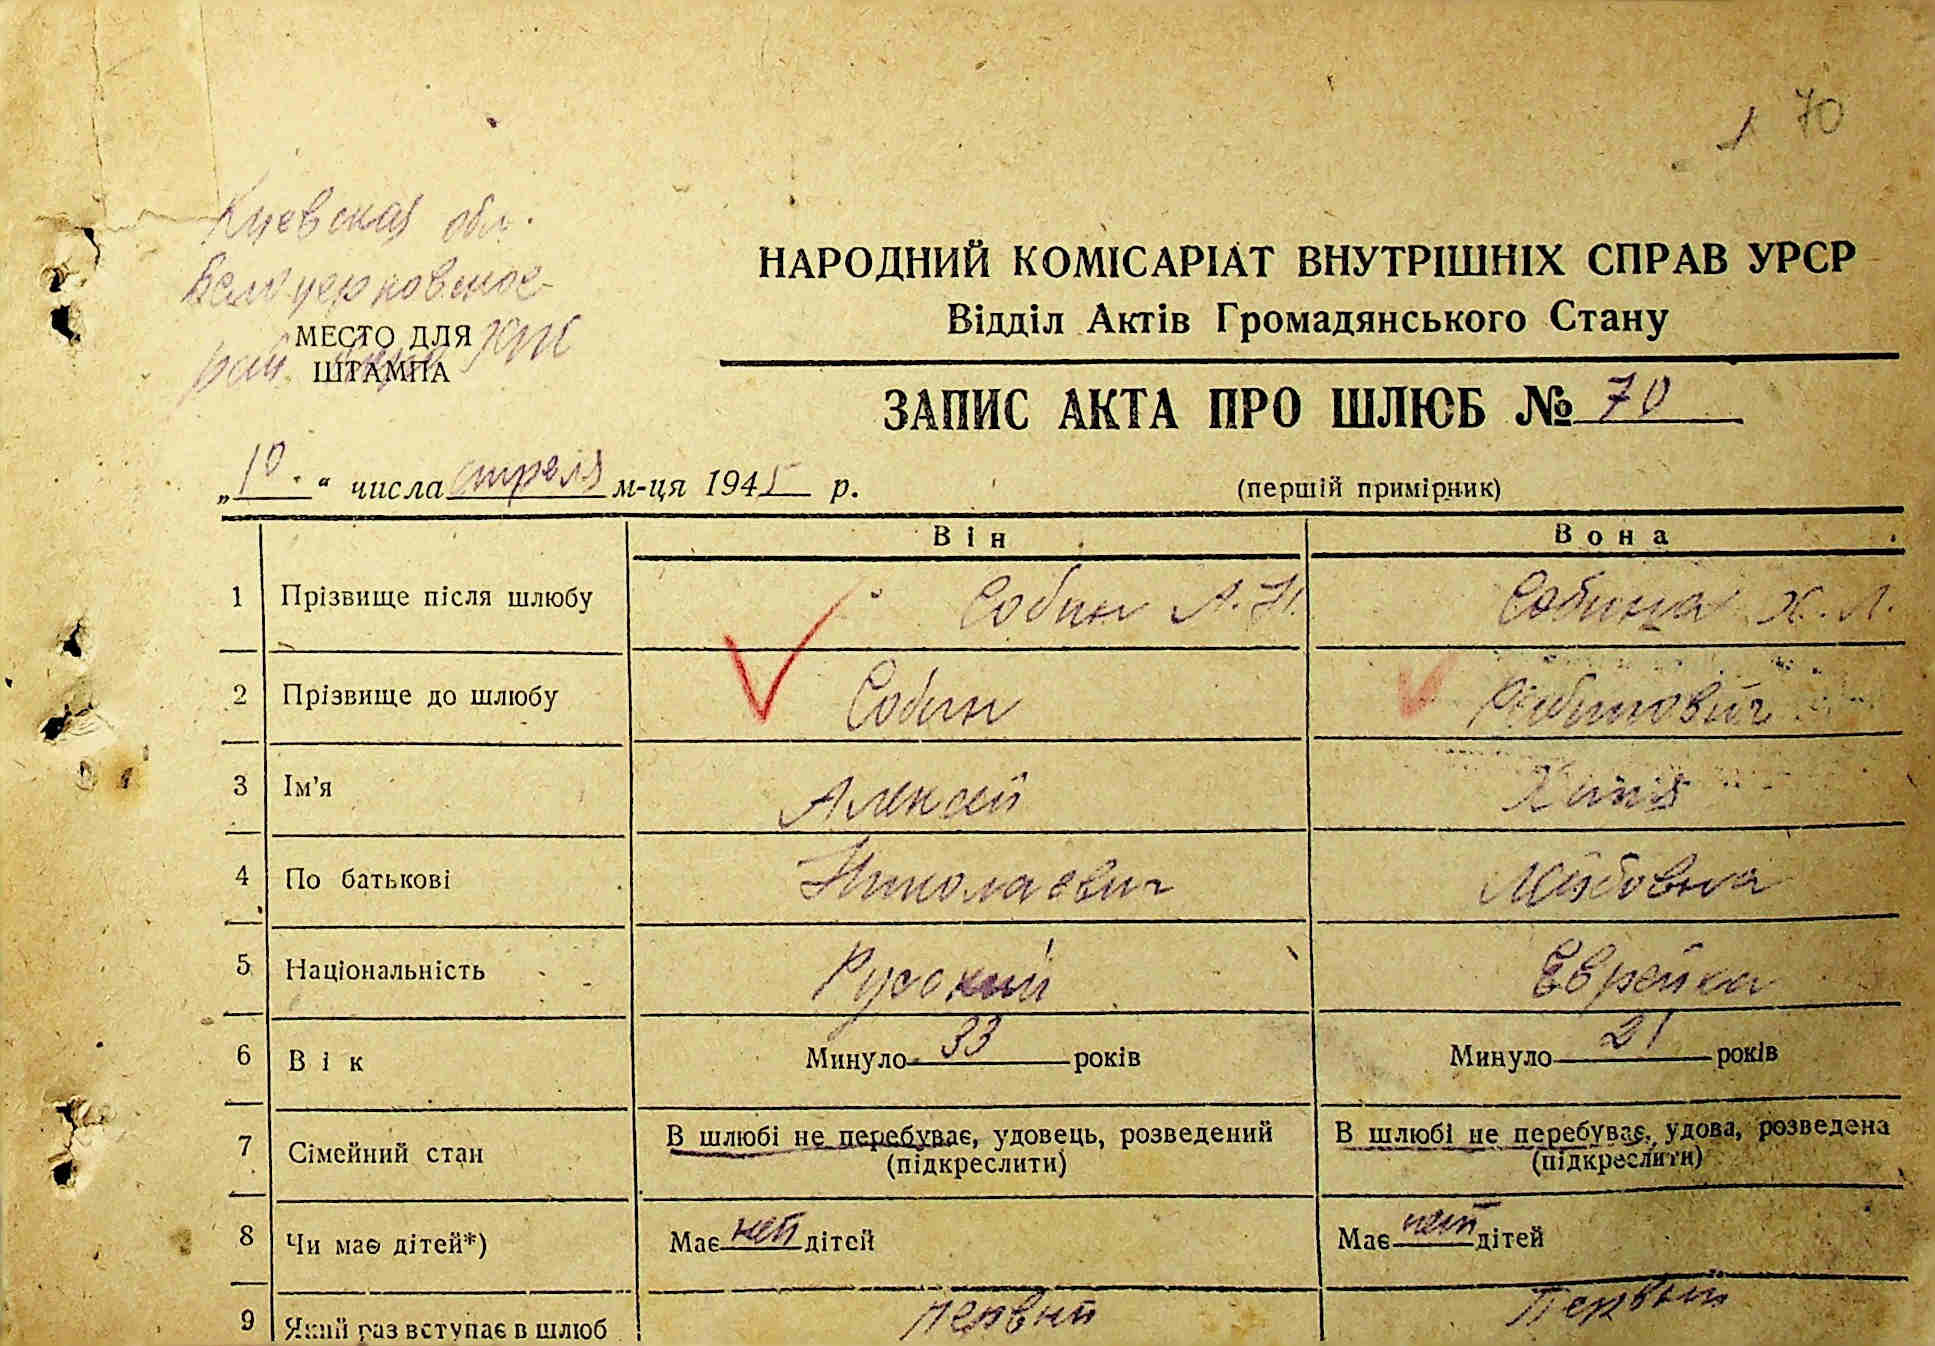 70
Киевская обл.
Белоцерковское
МЕСТО ДЛЯ
ШТАМПА
рай
НАРОДНИЙ КОМІСАРІАТ ВНУТРІШНІХ СПРАВ УРСР
Відділ Актів Громадянського Стану
ЗАПИС АКТА ПРО ШЛЮБ № 70
„10“ числа апреля м-ця 1945 р. (першій примірник)
Він Вона
1 Прізвище після шлюбу Собин А. Н. Собина Х. Л.
2 Прізвище до шлюбу Собин Рабинович
3 Ім'я Алексей
4 По батькові Николаевич Лейбовна
5 Національність Русский Еврейка
6 Вік Минуло 33 років Минуло 21 років
7 Сімейний стан В шлюбі не перебуває, удовець, розведений (підкреслити) В шлюбі не перебуває, удова, розведена (підкреслити)
8 Чи має дітей*) Має нет дітей Має нет дітей
9 Який раз вступає в шлюб первый Первый